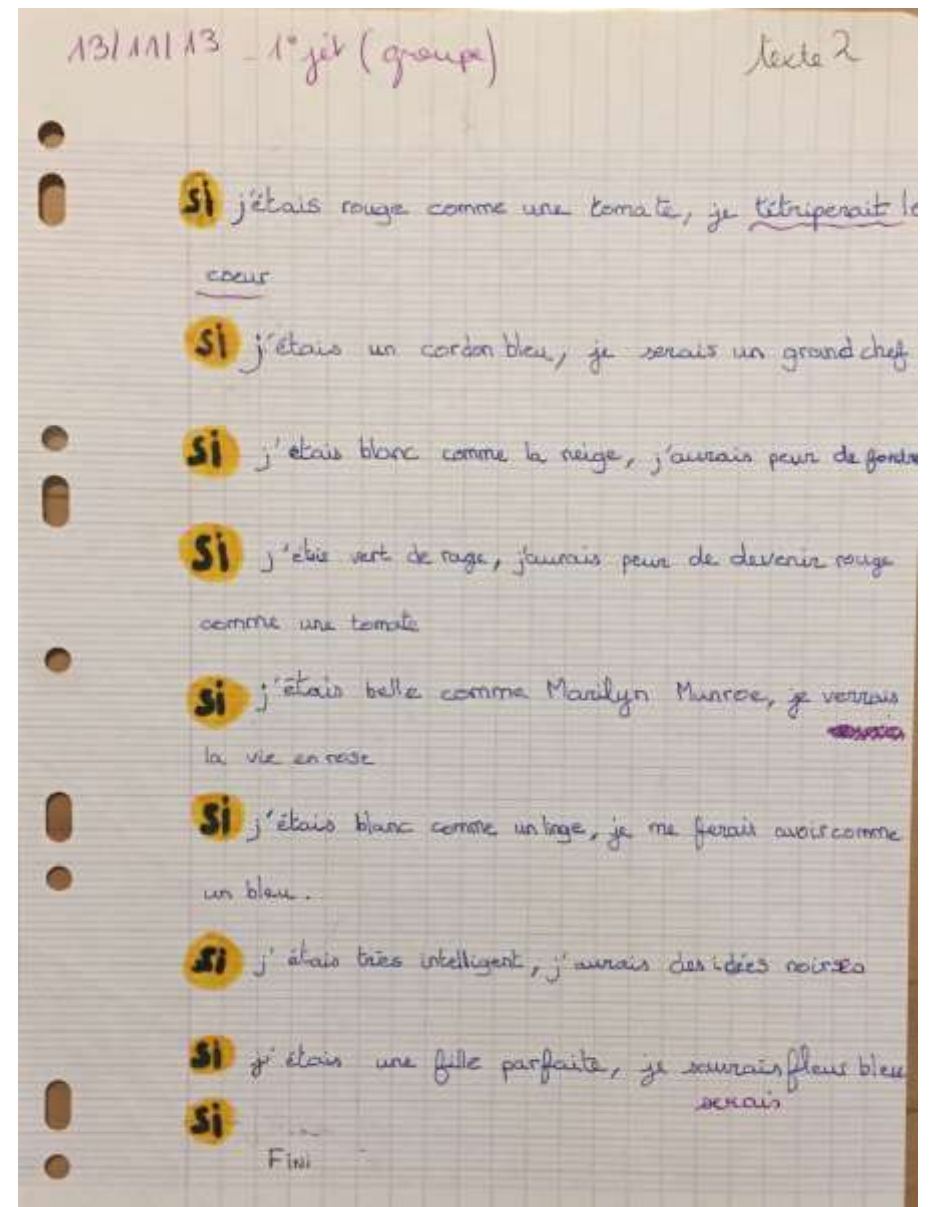 13/11/13 - 1° jet (groupe) texte 2
Si j'étais rouge comme une tomate, je t'étriperait le
coeur
Si j'étais un cordon bleu, je serais un grand chef
Si j'étais blanc comme la neige, j'aurais peur de fondre
Si j'etais vert de rage, j'aurais peur de devenir rouge
comme une tomate
Si j'étais belle comme Marilyn Munroe, je verrais
la vie en rose
Si j'étais blanc comme un linge, je me ferait avoir comme
un bleu.
Si j'étais très intelligent, j'aurais des idées noires
Si j'étais une fille parfaite, je saurais fleur bleu
serais
Si
Fini